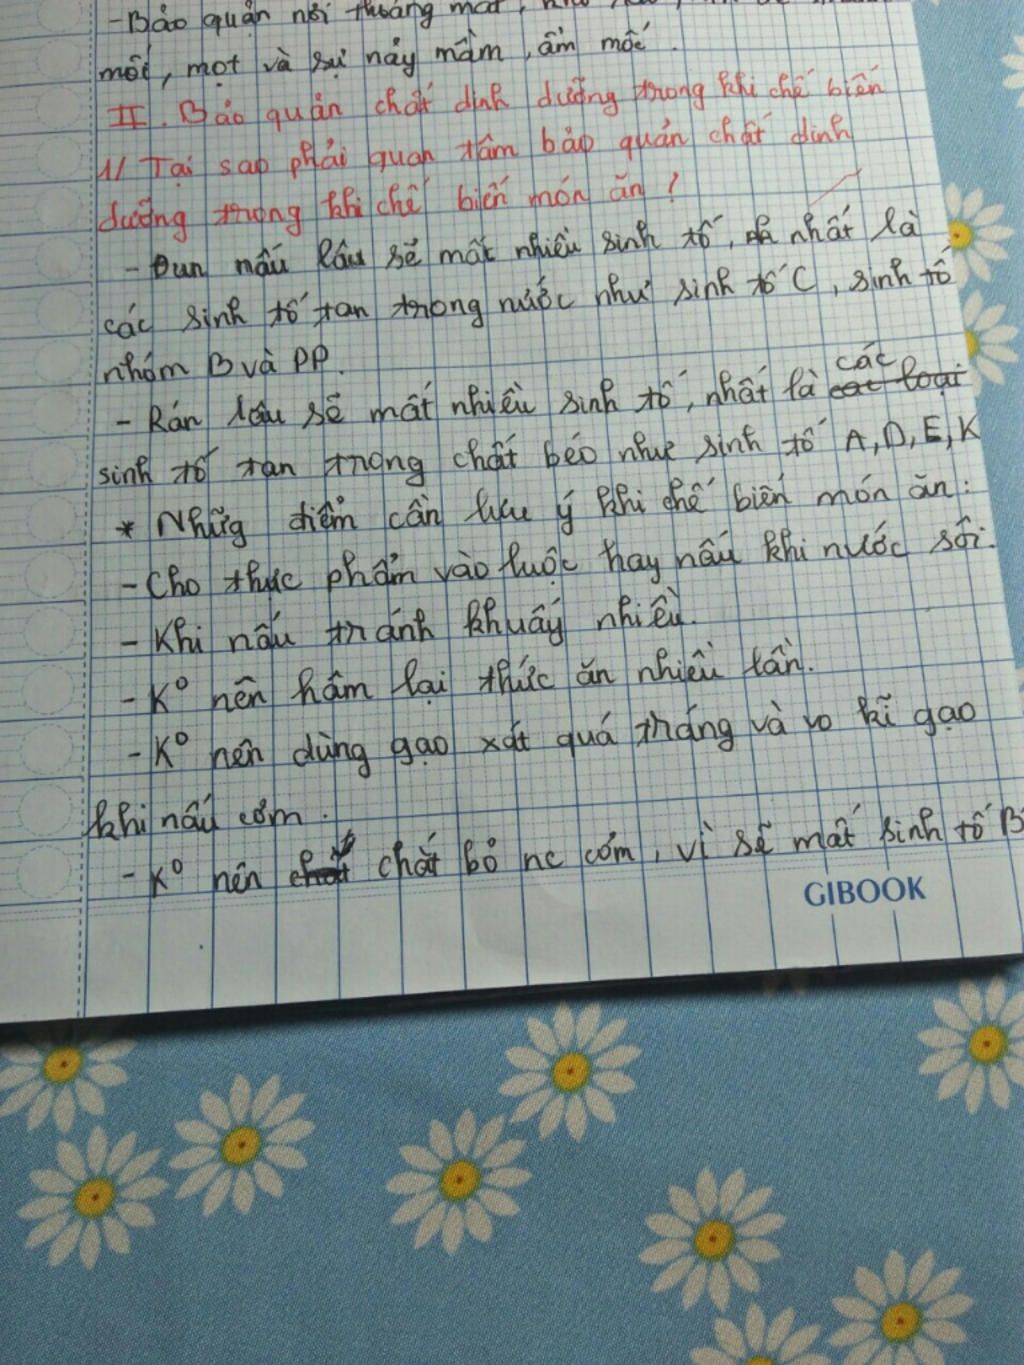 - Bảo quản nơi thoáng mát,
mối, mọt và sự nảy mầm, ẩm mốc.
II. Bảo quản chất dinh dưỡng trong khi chế biến
1/ Tại sao phải quan tâm bảo quản chất dinh
dưỡng trong khi chế biến món ăn?
- Đun nấu lâu sẽ mất nhiều sinh tố, nhất là
các sinh tố tan trong nước như sinh tố C, sinh tố
nhóm B và PP.
- Rán lâu sẽ mất nhiều sinh tố, nhất là các
sinh tố tan trong chất béo như sinh tố A, D, E, K
* Những điểm cần lưu ý khi chế biến món ăn:
- Cho thực phẩm vào luộc hay nấu khi nước sôi.
- Khi nấu tránh khuấy nhiều.
- K° nên hâm lại thức ăn nhiều lần.
- K° nên dùng gạo xát quá trắng và vo kĩ gạo
khi nấu cơm.
- K° nên chắt bỏ nc cơm, vì sẽ mất sinh tố B
GIBOOK